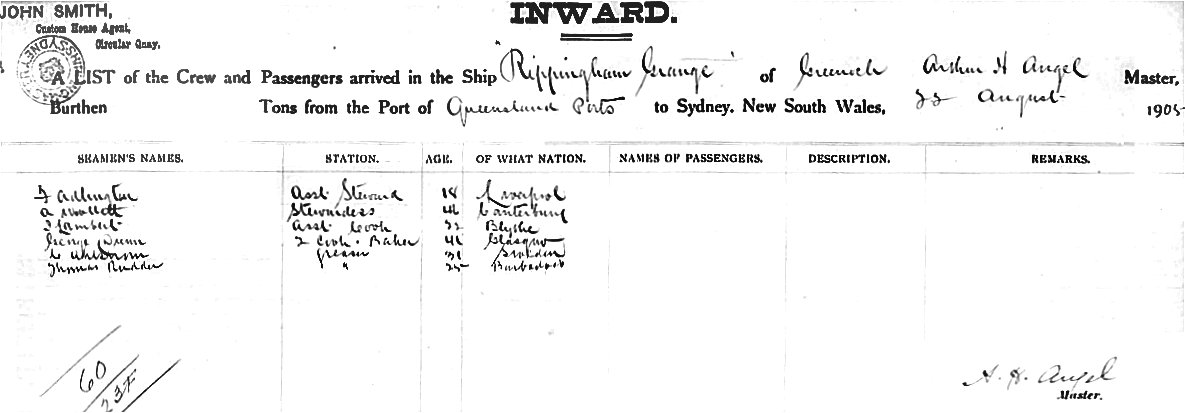 JOHN SMITH,
Custom House Agent,
Circular Quay,
INWARD.
A LIST of the Crew and Passengers arrived in the Ship "Rippingham Grange" of Greenock Arthur H Angel Master,
Burthen Tons from the Port of Queensland Ports to Sydney. New South Wales, 22 August 1905
SEAMEN'S NAMES. STATION. AGE. OF WHAT NATION. NAMES OF PASSENGERS. DESCRIPTION. REMARKS.
Asst. Steward 18 Liverpool
Stewardess Canterbury
Lambert Asst. Cook 22 Blythe
George Dunn 2 Cook & Baker Glasgow
greaser Sweden
Thomas Rudder " 25 Barbados
60
A. H. Angel
Master.